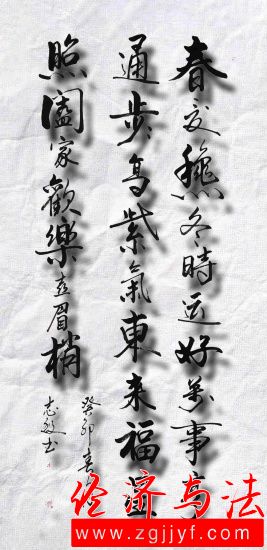 春夏龝冬時運好萬事
通步々高紫氣東来福星
照闔家歡樂喜眉梢
癸卯春
经济与法
www.zgjjyf.com